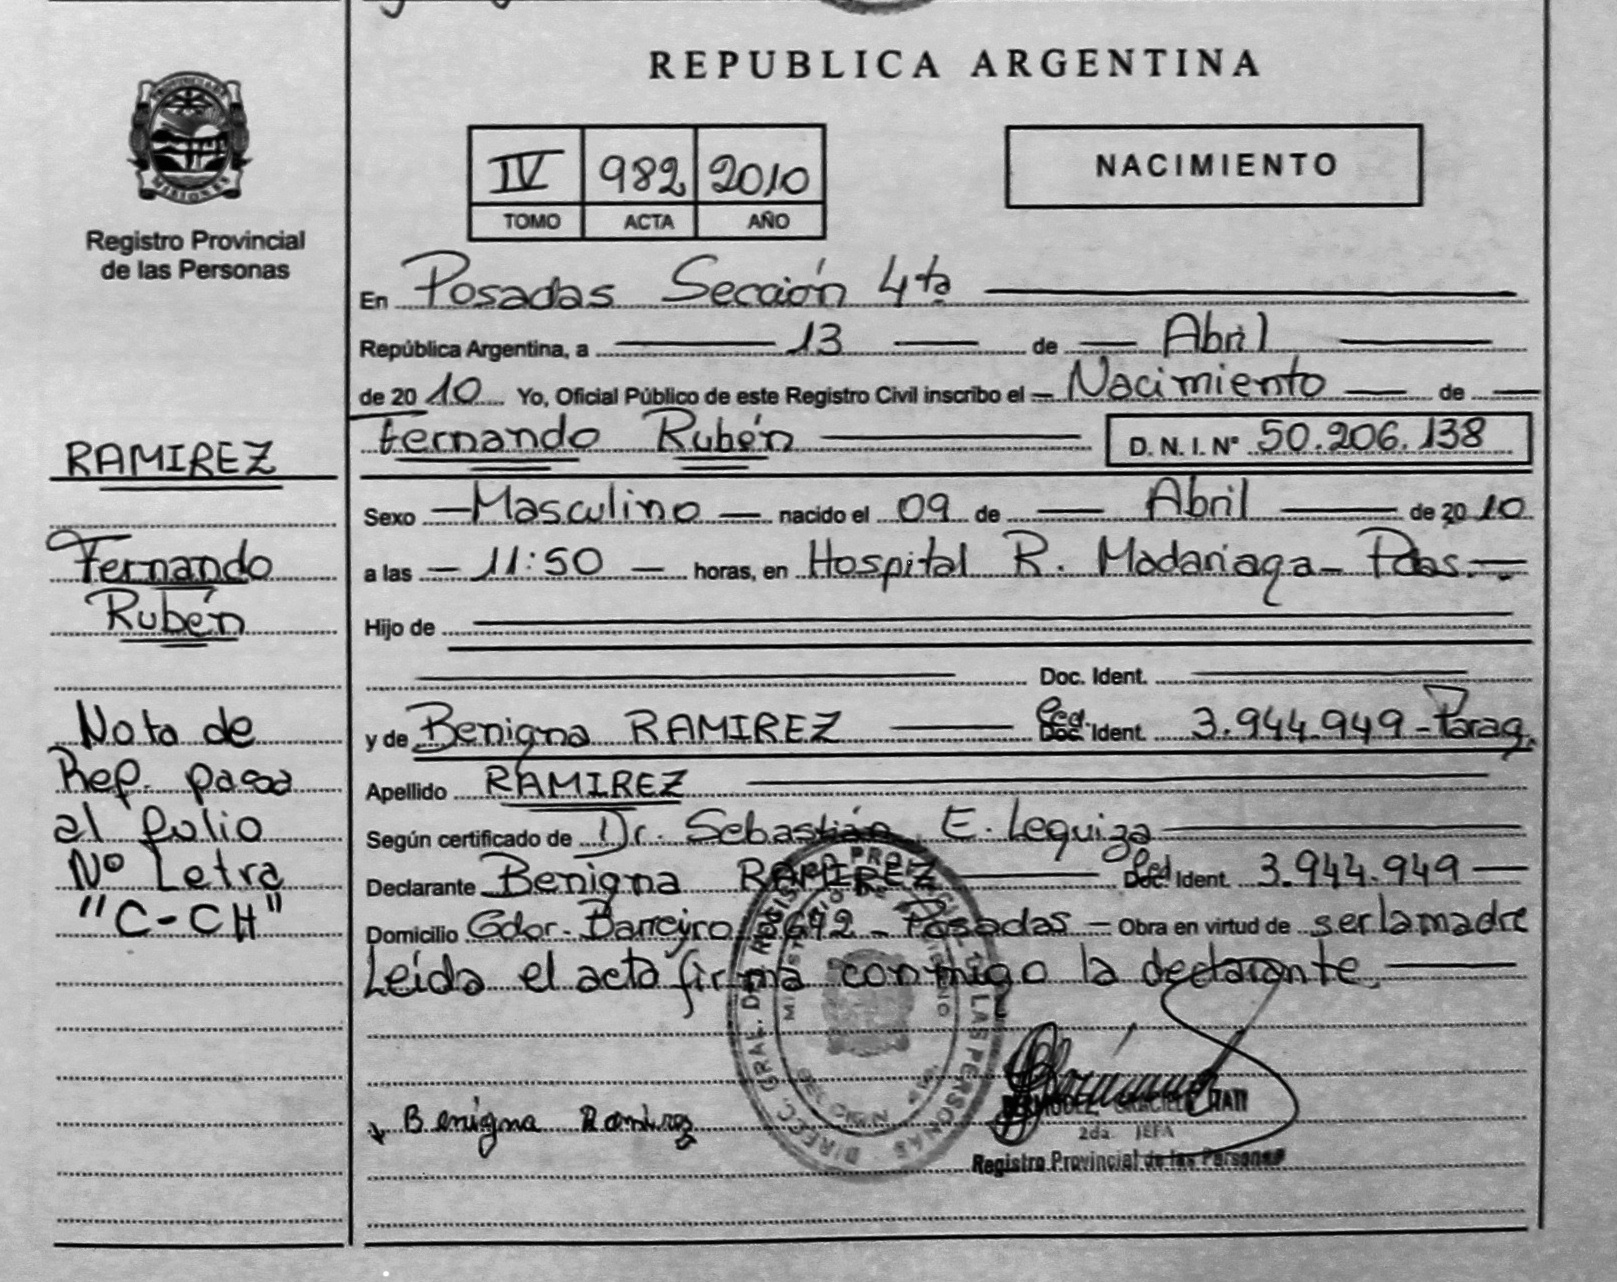 REPUBLICA ARGENTINA
PROVINCIA DE
MISIONES
Registro Provincial
de las Personas
IV 982 2010
TOMO ACTA AÑO
NACIMIENTO
En Posadas Sección 4ta
República Argentina, a 13 de Abril
de 2010 Yo, Oficial Público de este Registro Civil inscribo el Nacimiento de
Fernando Rubén D. N. I. N° 50.206.138
RAMIREZ
Fernando
Rubén
Sexo Masculino nacido el 09 de Abril de 2010
a las 11:50 horas, en Hospital R. Madariaga - Pdas.
Hijo de
Doc. Ident.
y de Benigna RAMIREZ Ced. Doc. Ident. 3.944.949 - Parag.
Apellido RAMIREZ
Según certificado de Dr. Sebastián E. Lequiza
Declarante Benigna RAMIREZ Ced. Doc. Ident. 3.944.949
Domicilio Gdor. Barreyro 2692 - Posadas - Obra en virtud de ser la madre
Leída el acta firma conmigo la declarante.
Nota de
Ref. pasa
al folio
Nº Letra
"C-CH"
Benigna Ramirez
DIREC. GRAL. DEL REGISTRO PROVINCIAL DE LAS PERSONAS
MINISTERIO DE GOBIERNO
GRACIELA
2da JEFA
Registro Provincial de las Personas